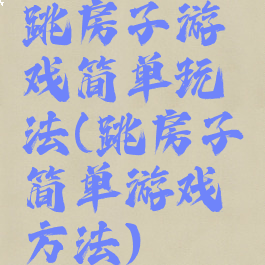 跳房子游
戏简单玩
法(跳房子
简单游戏
方法)